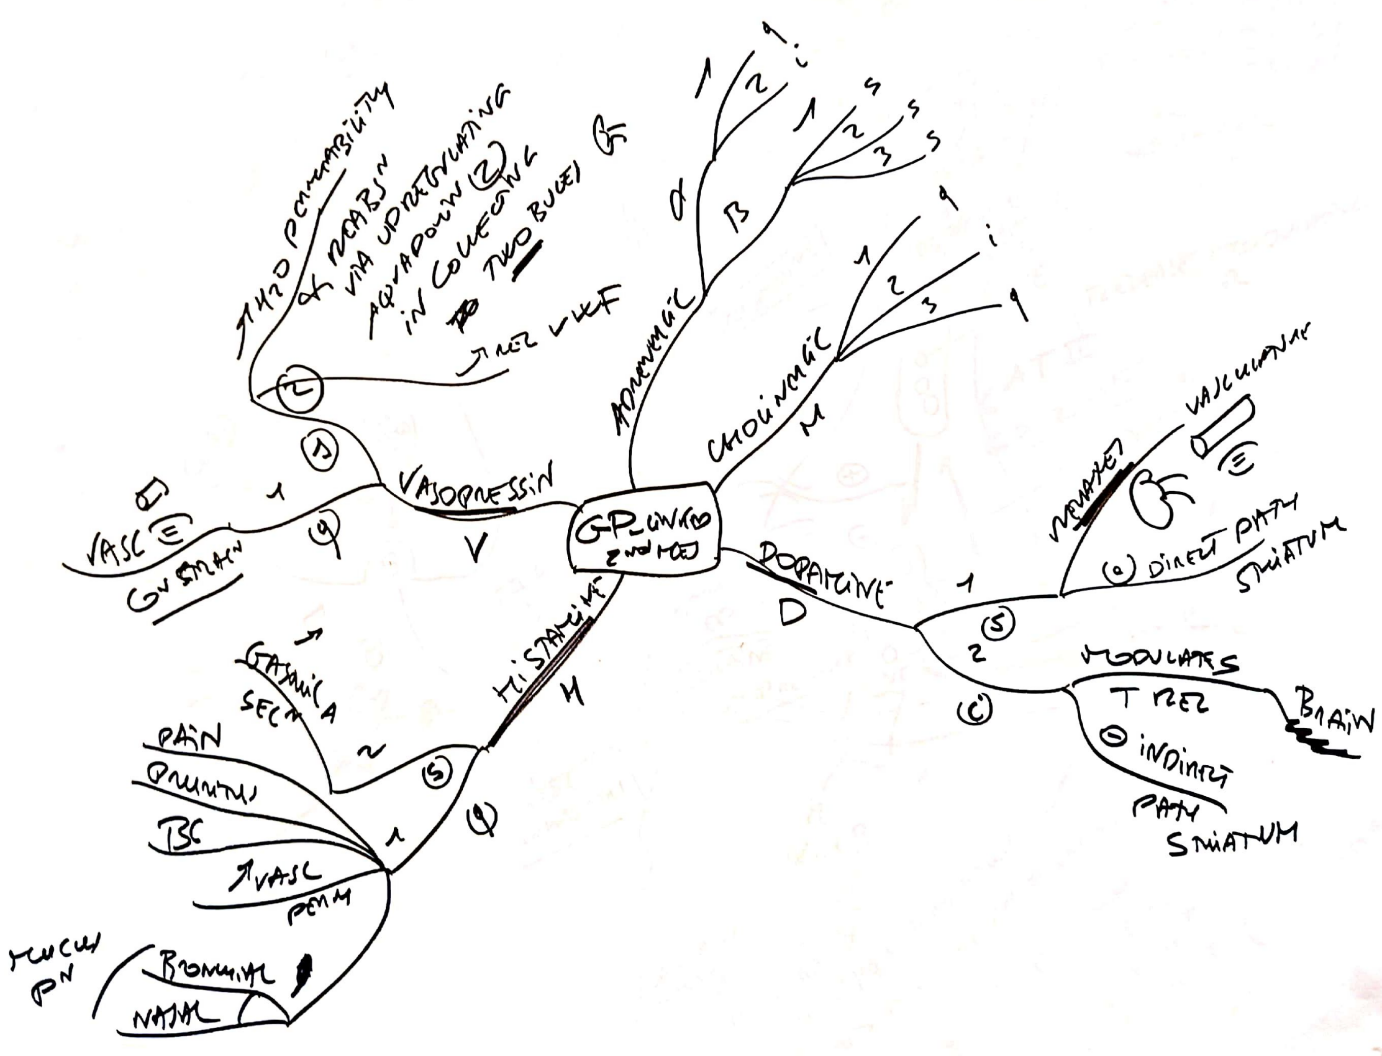 GP-LINKED
2nd MES
ADRENERGIC
α
1
q
2
i
B
1
s
2
s
3
s
CHOLINERGIC
M
1
q
2
i
3
q
DOPAMINE
D
1
S
RELAXES
VASCULATURE
DIRECT PATH
STRIATUM
2
i
MODULATES
T REL
BRAIN
⊖ INDIRECT
PATH
STRIATUM
HISTAMINE
H
2
S
↑
GASTRIC A
SECN
1
q
PAIN
PRURITUS
BC
↑VASC
PERM
BRONCHIAL
NASAL
MUCUS
PN
VASOPRESSIN
V
1
q
VASC
SM
2
S
↑H2O PERMEABILITY
& REABSN
VIA UPREGULATING
AQUAPORIN (2)
IN COLLECTING
TWO BULES
↑REL VWF